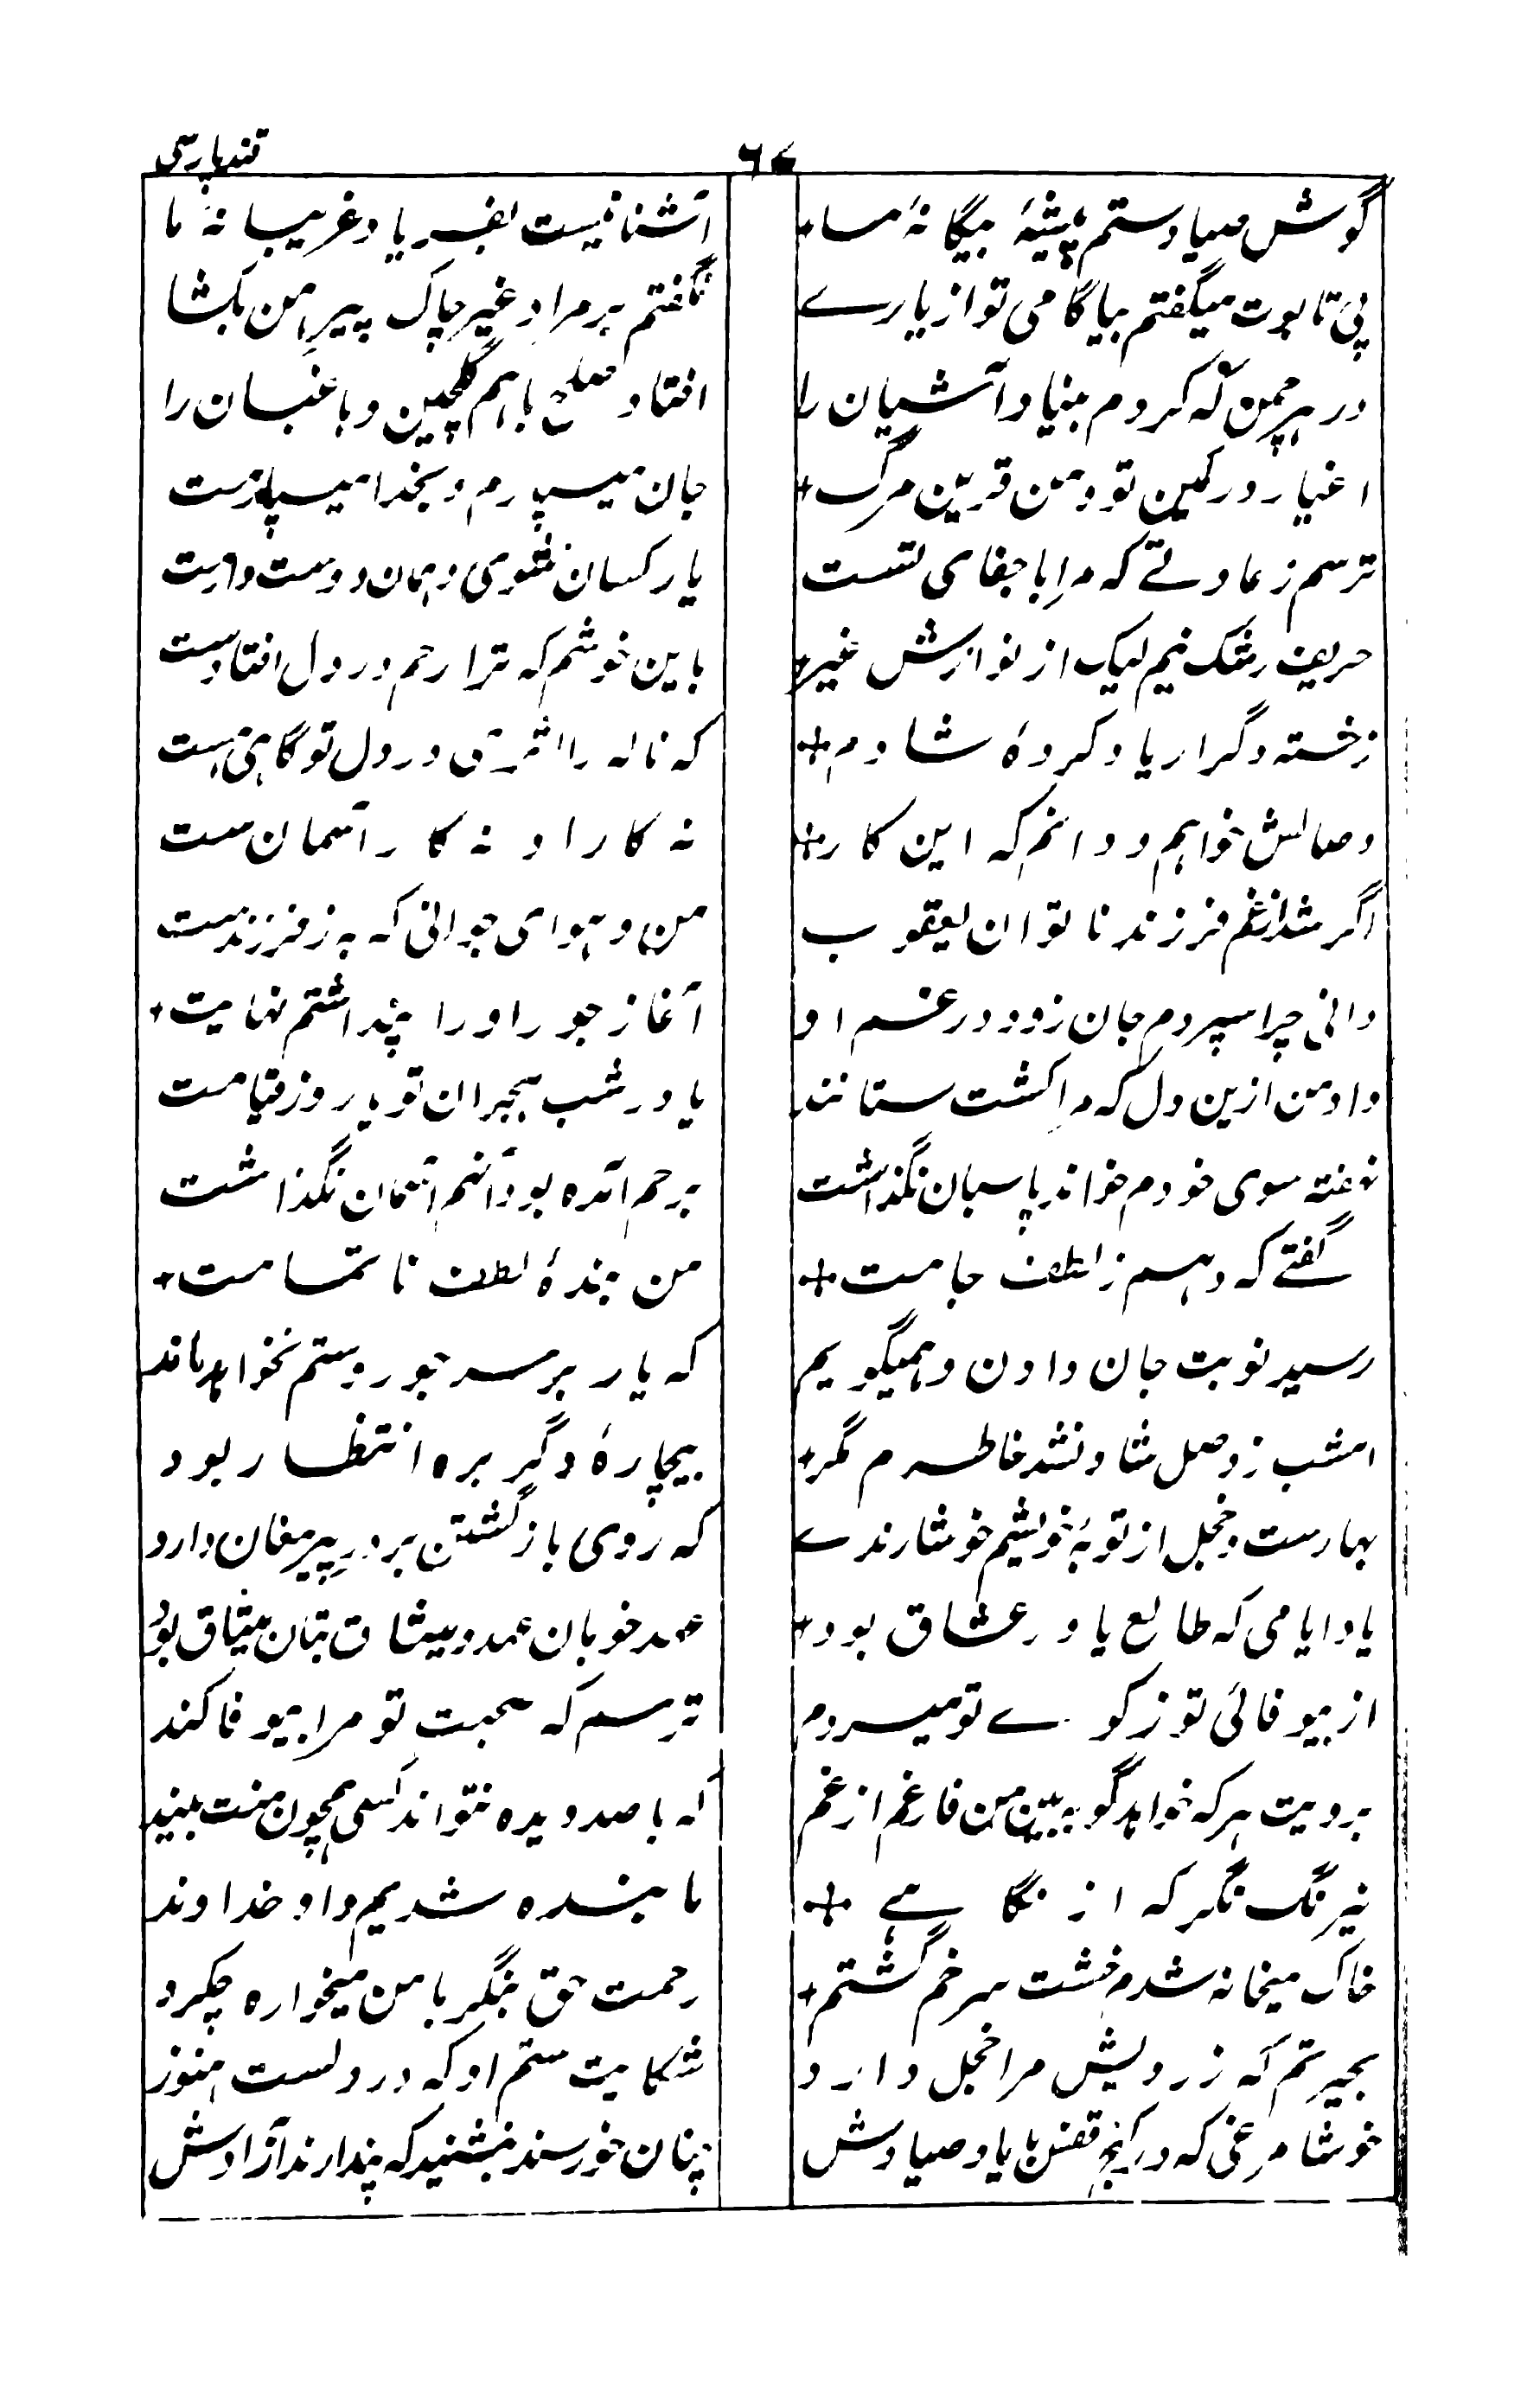 قند پارسی
۶۷
گوش صیاد ستم پیشهٔ بیگانهٔ ماست آشنا نیست بفریاد غریبانهٔ ما
پئ تابوت میگفتم بیا گامی تو از یارے نگفتم بر مرادِ غیر چاک پیرہن بکشا
در ہر چمن کہ کردم بنیاد آشیان را افتاد صلح باہم گلچین و باغبان را
اغیار در کمین تو و من قرین مرگ جان میسپارم و بخدا میسپارمت
ترسم ز عادتے کہ مرا با جفای تست یار کسان شوی و ہمان دوست دارمت
حریف رشک نیم لیک از نوازش غیر باین خوشم کہ ترا رحم در دل افتادست
ز خستہ دگر ار یاد کردۂ شادم کہ نالہ را اثرى در دل تو گاہی ہست
وصالش خواہم و دانم کہ این کار نہ کار او نہ کار آسمان ست
اگر شد از غم فرزند ناتوان یعقوب من و ہوای جوانی کہ بہ ز فرزندست
دانی چرا سپردم جان زود در غم او آغاز جور او را پنداشتم نہایت
داد من ازین دل کہ مرا کشت ستانند یا در شب ہجران تو یا روز قیامت
نہفتہ سوی خودم خواند پاسبان نگذاشت برحم آمدہ بود آنہم آسمان نگذاشت
گفتے کہ دہم ز لطف جامت من بندهٔ لطف ناتمامت
رسید نوبت جان دادن و ہمیگویم کہ یار بر سر جور و ستم نخواہد ماند
امشب ز وصل شاد نشد خاطرم مگر بیچارهٔ دگر برہ انتظار بود
بہارست و خجل از توبهٔ خویشم خوشا رندے کہ روی باز گشتن بر درِ پیر مغان دارد
یاد ایامی کہ طالع یاور عشاق بود عہد خوبان عہد و میثاق بتان میثاق بود
از بیوفائی تو ز کوے تو میروم ترسم کہ صحبتِ تو مرا بیوفا کند
برویت ہر کہ خواہد گو ببین من فارغم از غم کہ با صد دیدہ نتواند کسی ہمچون منت بیند
نیرنگ نگر کہ از نگاہے ما بندہ شدیم و او خداوند
خاک میخانہ شدم خشت سر خم گشتم رحمت حق بنگر با من میخوارہ چکرد
بحیرتم کہ ز رویش مرا خجل دارد شکایت ستم او کہ در دلست ہنوز
خوشا مرغی کہ در کنجِ قفس با یاد صیادش چنان خورسند بنشیند کہ پندارند آزادش